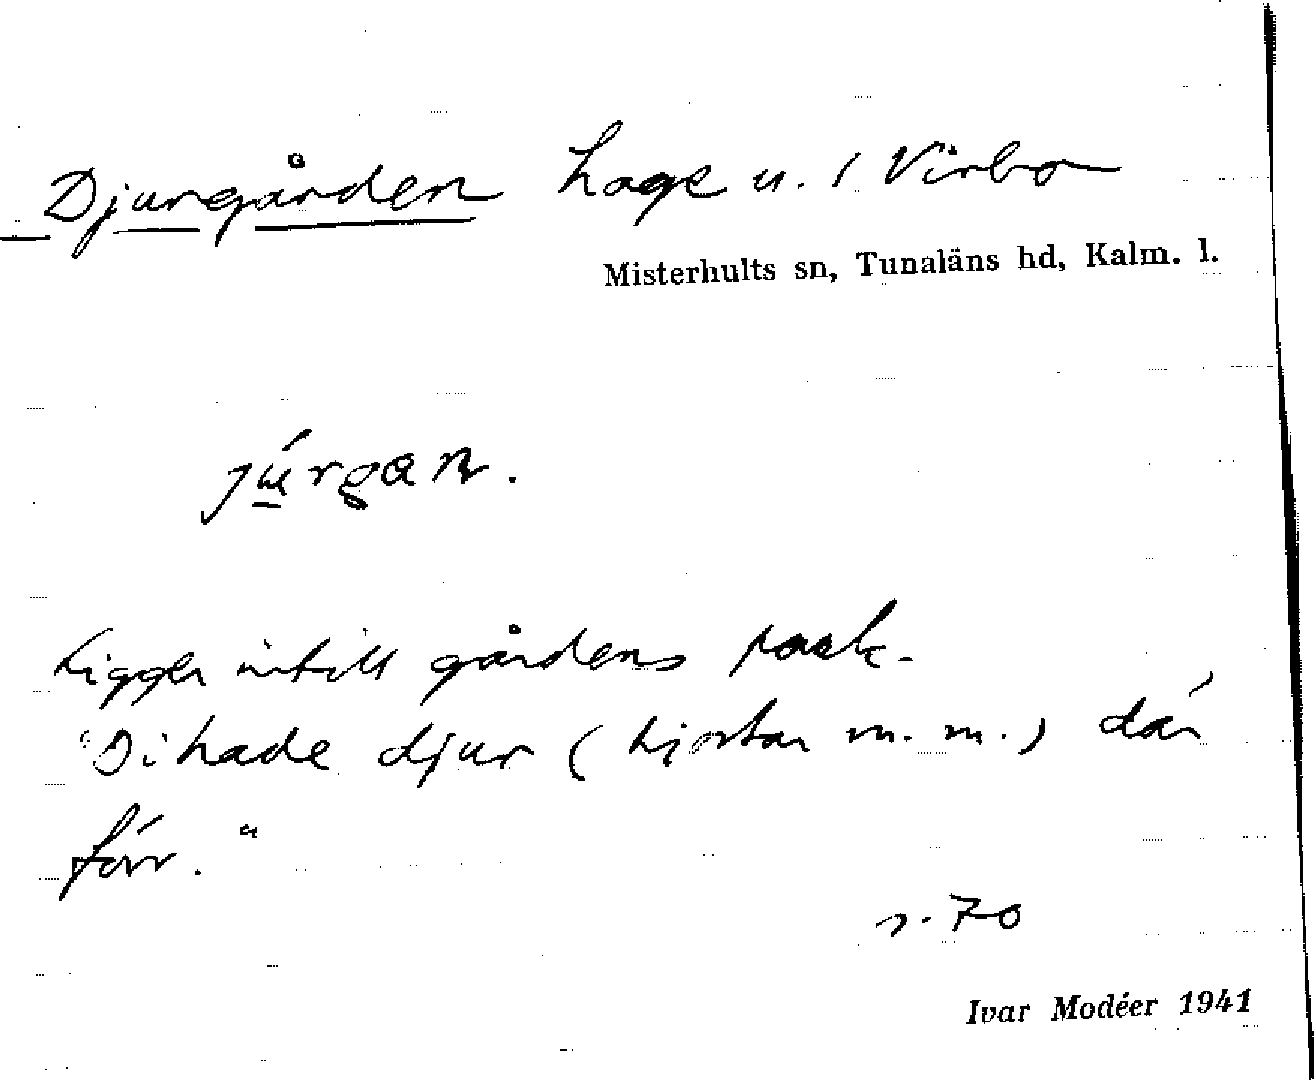 Djurgården hage u. 1 Virbo
Misterhults sn, Tunaläns hd, Kalm. l.
júrgan.
Ligger intill gårdens park.
"Di hade djur (hjortar m. m.) där
förr."
s. 70
Ivar Modéer 1941